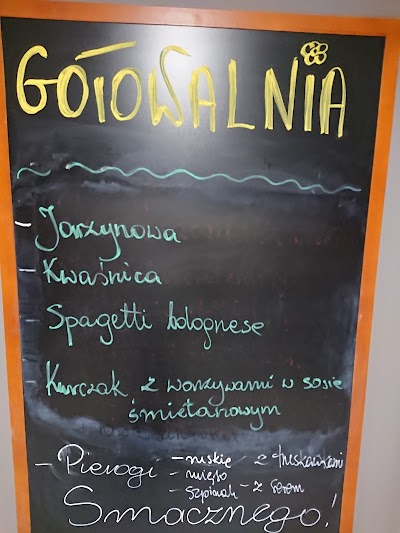 GOTOWALNIA
- Jarzynowa
- Kwaśnica
- Spagetti bolognese
- Kurczak z warzywami w sosie
śmietanowym
- Pierogi - ruskie / z truskawkami
- mięso
- szpinak - z serem
Smacznego!